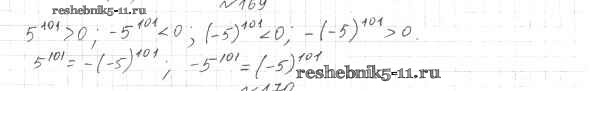 №169
reshebnik5-11.ru
5^101>0; -5^101<0; (-5)^101<0; -(-5)^101>0.
5^101=-(-5)^101; -5^101=(-5)^101
reshebnik5-11.ru
№170